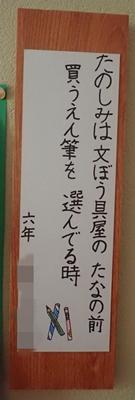 たのしみは文ぼう具屋のたなの前
買うえん筆を選んでる時
六年